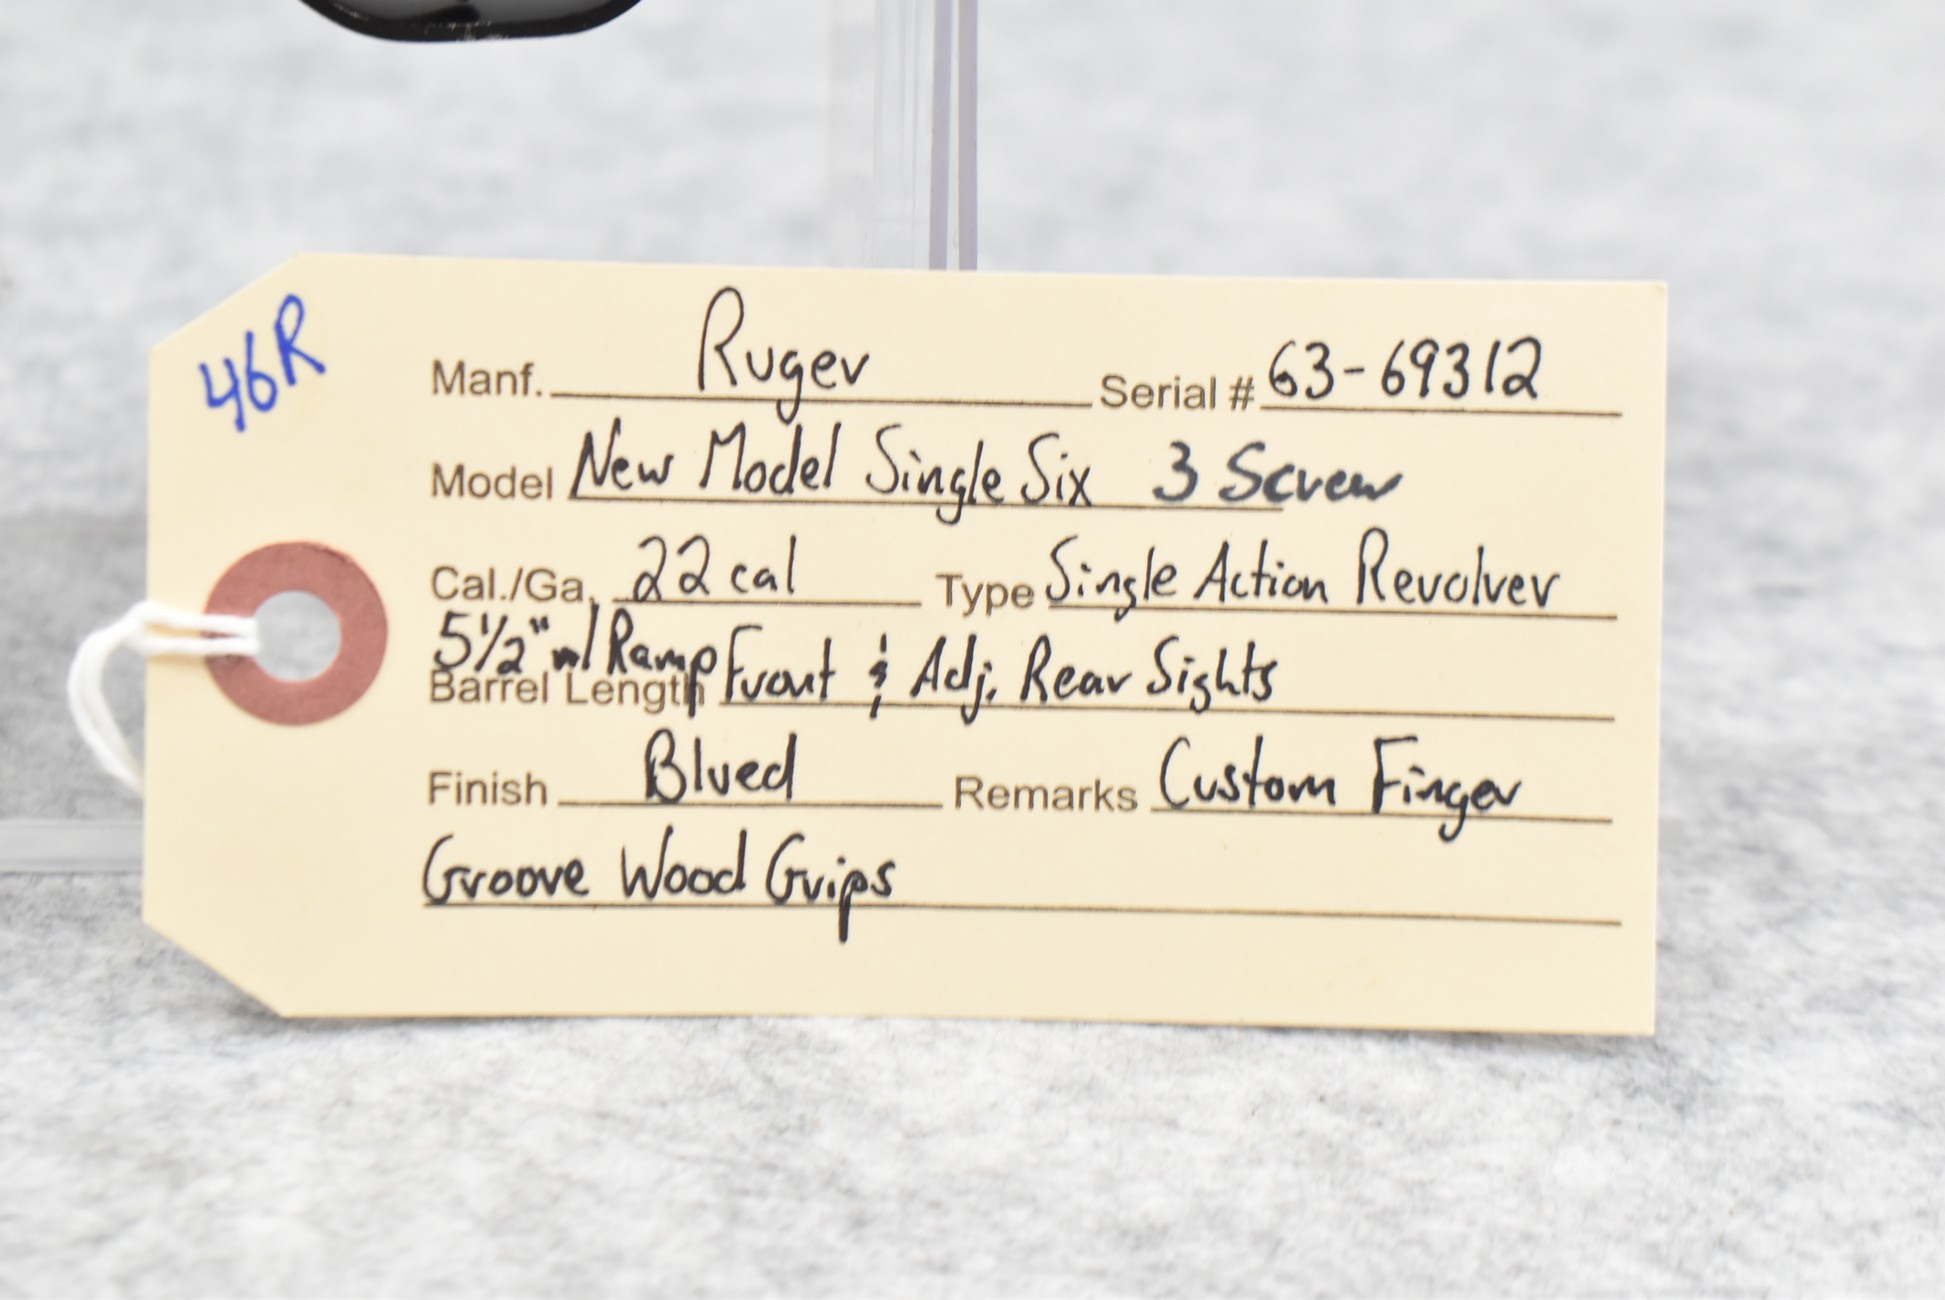 46R
Manf. Ruger Serial # 63-69312
Model New Model Single Six 3 Screw
Cal./Ga. 22 cal Type Single Action Revolver
Barrel Length 5½" w/ Ramp Front & Adj. Rear Sights
Finish Blued Remarks Custom Finger
Groove Wood Grips